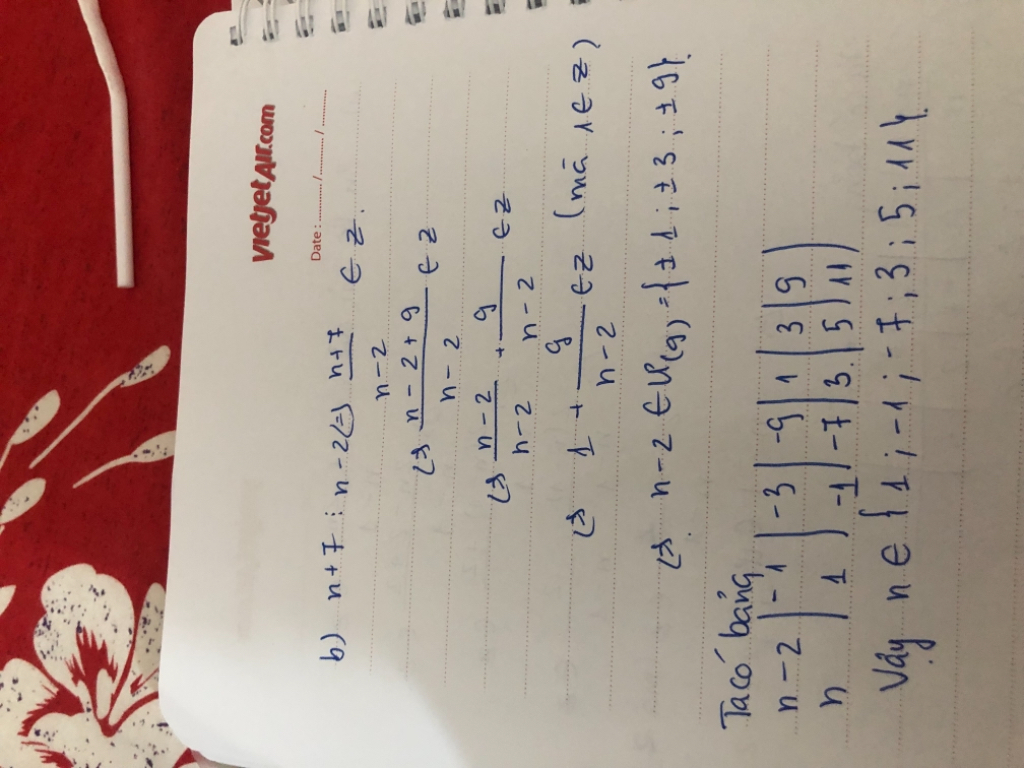 vietjetAir.com
Date : ............/............/............
b) n+7 ⋮ n-2 (=) n+7/n-2 ∈ Z.
(=) n-2+9/n-2 ∈ Z
(=) n-2/n-2 + 9/n-2 ∈ Z
(=) 1 + 9/n-2 ∈ Z (mà 1 ∈ Z)
(=) n-2 ∈ Ư(9) = {±1; ±3; ±9}.
Ta có bảng
n-2 | -1 | -3 | -9 | 1 | 3 | 9 |
n | 1 | -1 | -7 | 3 | 5 | 11 |
Vậy n ∈ {1; -1; -7; 3; 5; 11}.